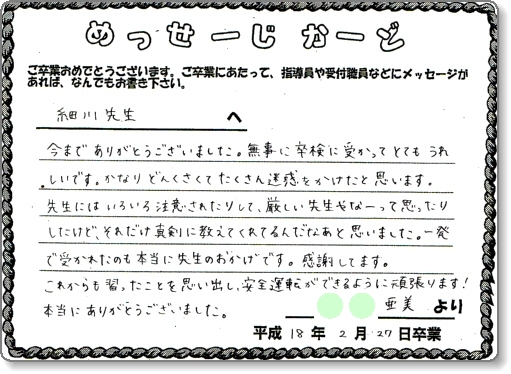 めっせーじかーど
ご卒業おめでとうございます。ご卒業にあたって、指導員や受付職員などにメッセージが
あれば、なんでもお書き下さい。
細川先生 へ
今までありがとうございました。無事に卒検に受かってとてもうれ
しいです。かなりどんくさくてたくさん迷惑をかけたと思います。
先生にはいろいろ注意されたりして、厳しい先生やなーって思ったり
したけど、それだけ真剣に教えてくれてるんだなあと思いました。一発
で受かれたのも本当に先生のおかげです。感謝してます。
これからも習ったことを思い出し、安全運転ができるように頑張ります!
本当にありがとうございました。
亜美 より
平成 18 年 2 月 27 日卒業